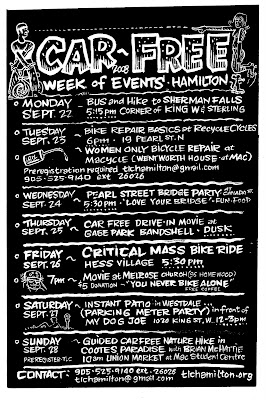 CAR~FREE
2008
WEEK of EVENTS · HAMILTON
MONDAY SEPT. 22 ~ BUS and HIKE to SHERMAN FALLS
5:15 pm CORNER of KING W & STERLING
TUESDAY SEPT. 23 ~ BIKE REPAIR BASICS at RECYCLE CYCLES
6pm · 19 PEARL ST. N
~ WOMEN ONLY BICYCLE REPAIR at
MACYCLE (WENTWORTH HOUSE - at MAC)
Preregistration required tlchamilton@gmail.com
905-525-9140 ext. 26026
WEDNESDAY SEPT. 24 ~ PEARL STREET BRIDGE PARTY
5:30 pm · 'LOVE YOUR BRIDGE' · FUN · FOOD
THURSDAY SEPT. 25 ~ CAR FREE DRIVE-IN MOVIE at
GAGE PARK BANDSHELL · DUSK
FRIDAY SEPT. 26 ~ CRITICAL MASS BIKE RIDE
HESS VILLAGE 5:30 pm
7pm ~ MOVIE at MELROSE CHURCH (86 HOMEWOOD)
$5 DONATION ~ "YOU NEVER BIKE ALONE"
FREE COFFEE
SATURDAY SEPT. 27 ~ INSTANT PATIO in WESTDALE ...
(PARKING METER PARTY) in front of
MY DOG JOE 1020 KING ST. W. 12-3pm
SUNDAY SEPT. 28 ~ GUIDED CARFREE NATURE HIKE in
COOTES PARADISE with BRIAN McHATTIE
PREREGISTER-TLC 10am UNION MARKET at Mac Student Centre
CONTACT: 905-525-9140 ext. 26026
tlchamilton@gmail.com tlchamilton.org